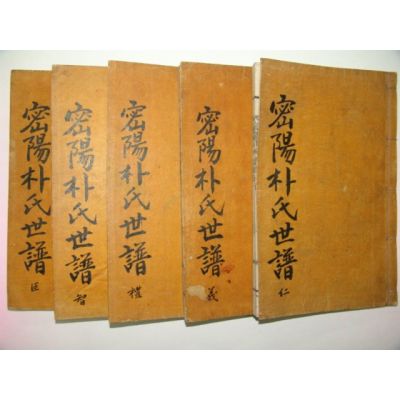 密陽朴氏世譜
仁
密陽朴氏世譜
義
密陽朴氏世譜
禮
密陽朴氏世譜
智
密陽朴氏世譜